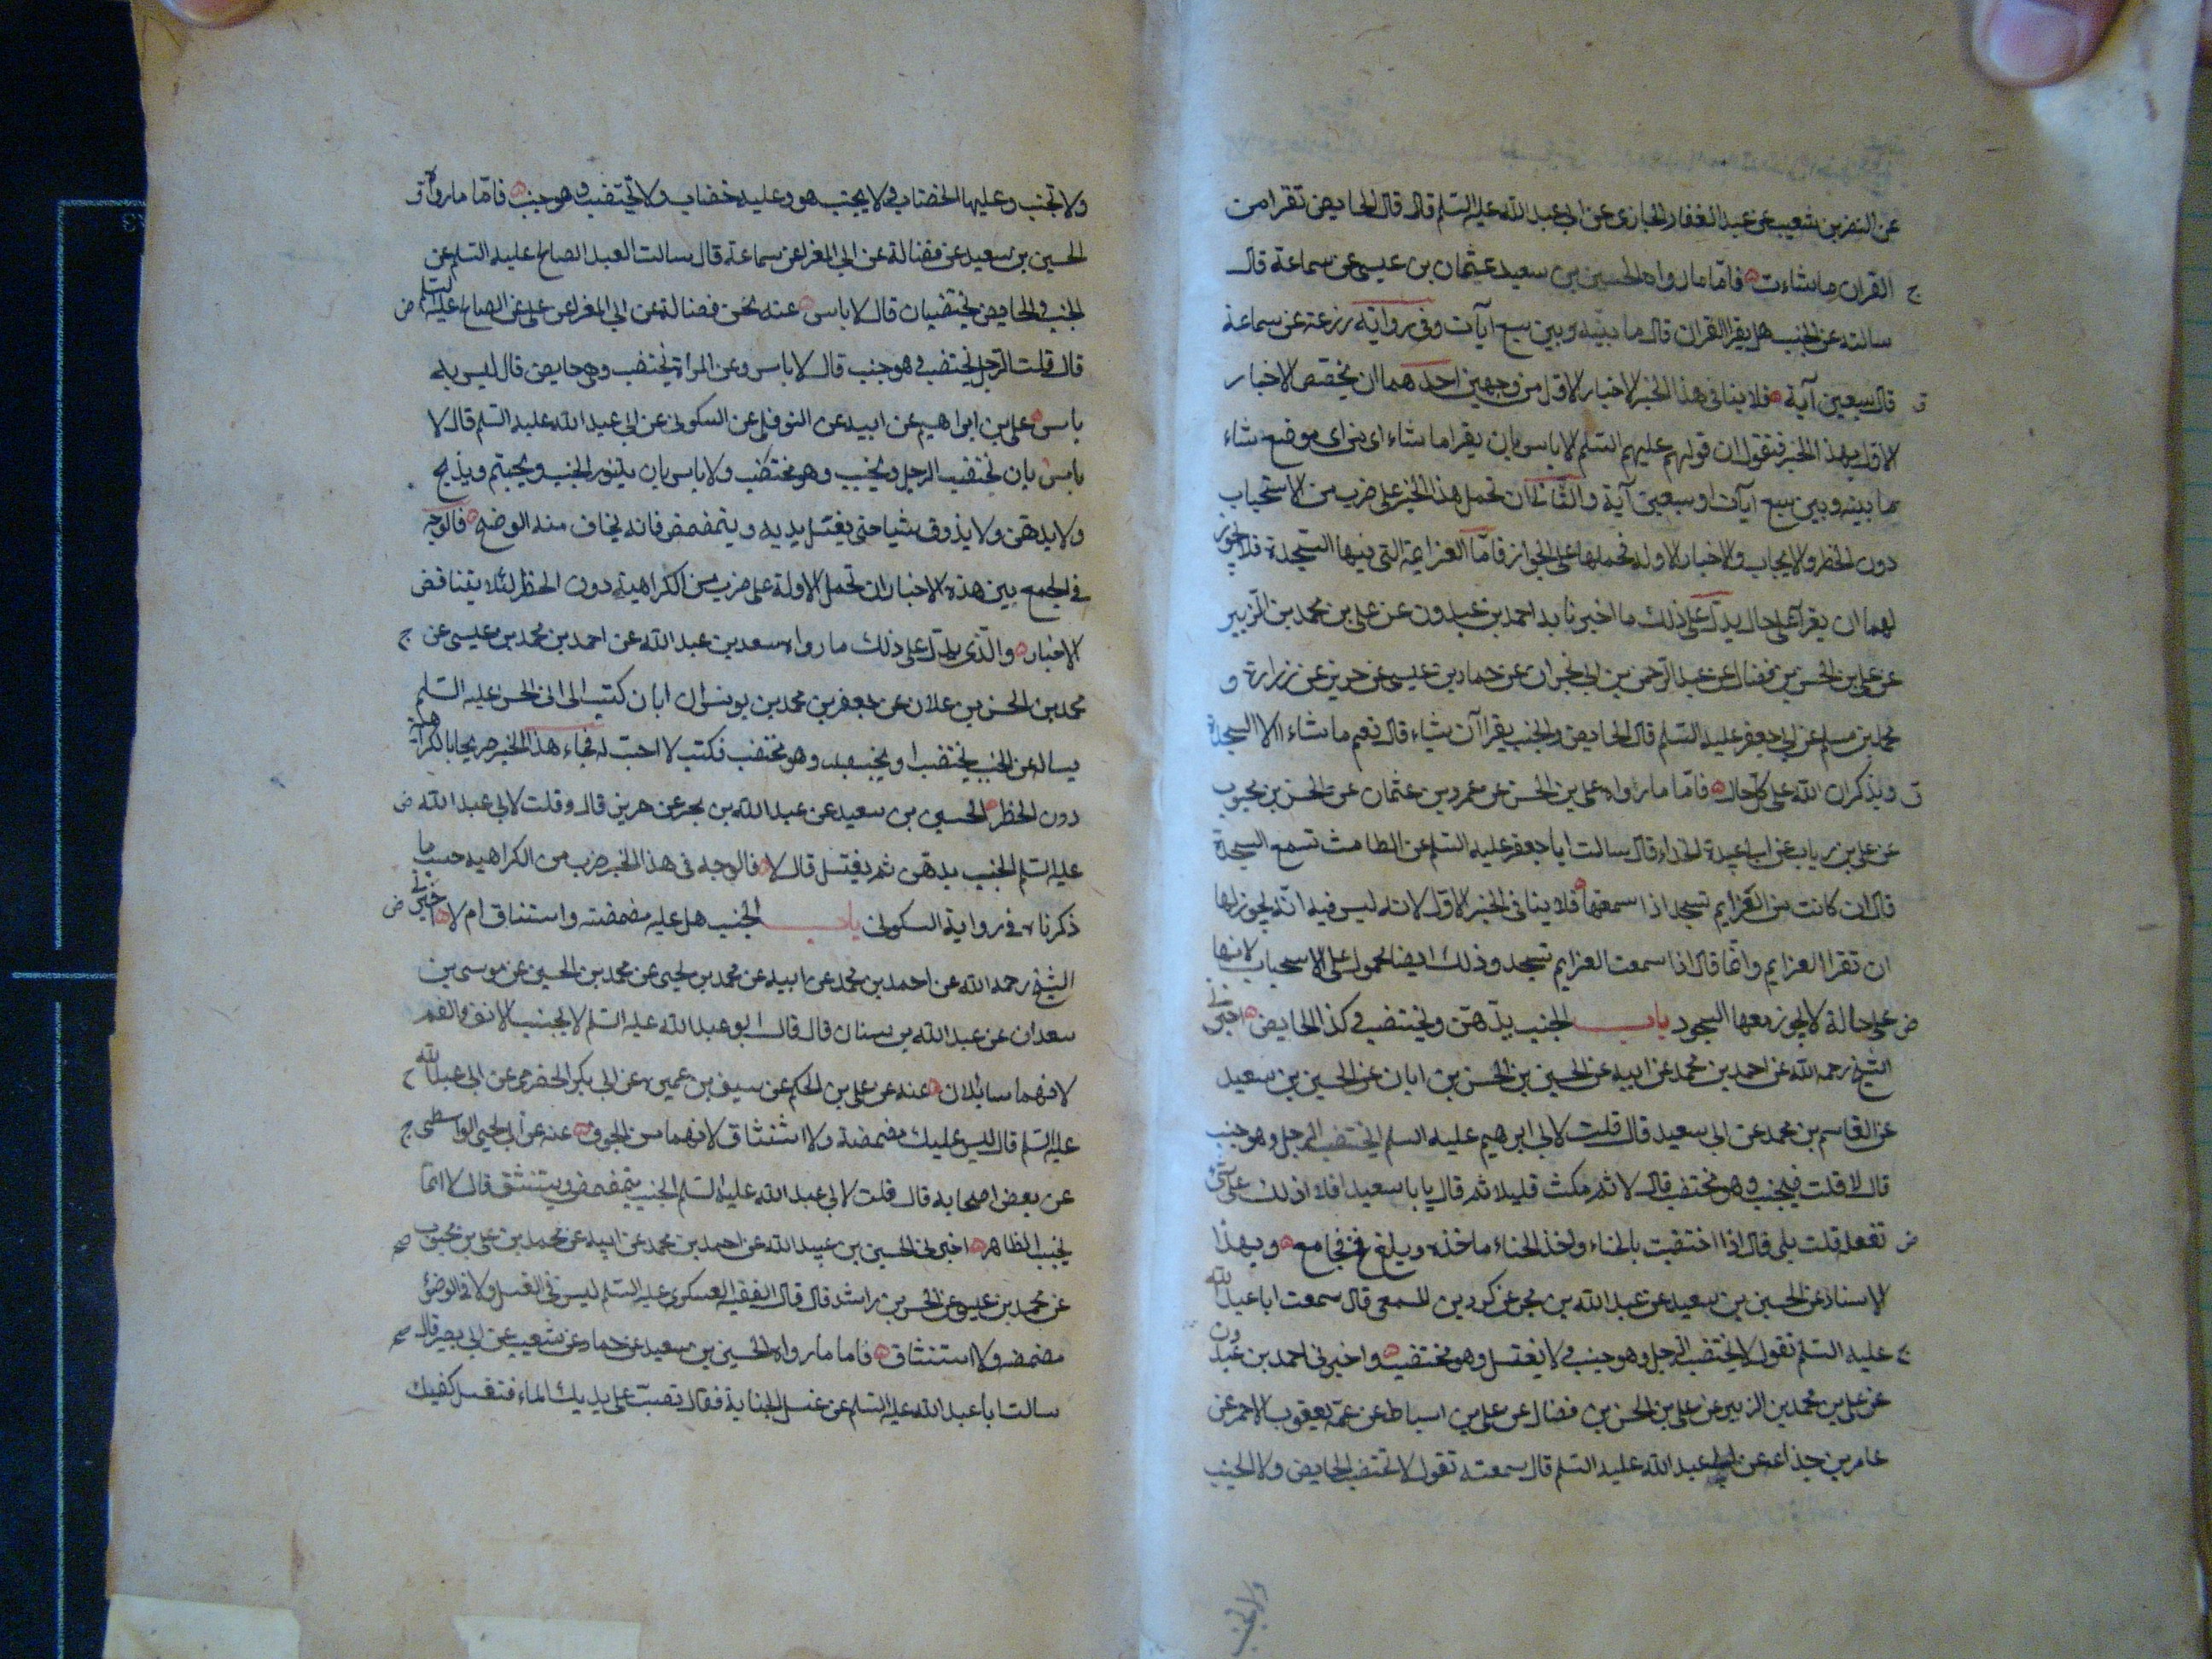 عن النضر بن شعيب عن عبد الغفار الجازى عن ابى عبد الله عليه السلم قال قال الحايض تقرا من
ج القران ما شاءت فاما ما رواه الحسين بن سعيد عثمان بن عيسى عن سماعة قال
سالته عن الجنب هل يقرا القران قال ما بينه وبين سبع ايات وفى رواية زرعة عن سماعة
ق قال سبعين آية فلا ينافى هذا الخبر الاخبار الاول من وجهين احدهما ان نخصص الاخبار
الاول بهذا الخبر فنقول ان قولهم عليهم السلم لا باس بان يقرا ما شاء اى من اى موضع شاء
ما بينه وبين سبع ايات او سبعين آية والثانى ان نحمل هذا الخبر على ضرب من الاستحباب
دون الحظر والايجاب والاخبار الاولة نحملها على الجواز فاما العزايمة التى فيها السجدة فلا يجوز
لهما ان يقرا على حال يدل على ذلك ما اخبرنا به احمد بن عبدون عن على بن محمد بن الزبير
عن على بن الحسن بن فضال عن عبد الرحمن بن ابى نجران عن حماد بن عيسى عن حريز عن زرارة و
محمد بن مسلم عن ابى جعفر عليه السلم قال الحايض والجنب يقرا آن شياء قال نعم ما شاء الا السجدة
ق ويذكران الله على كل حال فاما ما رواه على بن الحسن عن عمرو بن عثمان عن الحسن بن محبوب
عن على بن رياب عن ابى عبيدة الحذاء قال سالت ابا جعفر عليه السلم عن الطامث تسمع السجدة
قال ان كانت من العزايم تسجد اذا سمعتها فلا ينافى الخبر الاول لانه ليس فيه انه يجوز لها
ان تقرا العزايم وانما قال اذا سمعت العزايم تسجد وذلك ايضا محمول على الاستحباب لانها
ض على حالة لا يجوز معها السجود باب الجنب يدّهن ويختضب وكذا الحايض اخبرنى
الشيخ رحمه الله عن احمد بن محمد عن ابيه عن الحسين بن الحسن بن ابان عن الحسين بن سعيد
عن القاسم بن محمد عن ابى سعيد قال قلت لابى ابرهيم عليه السلم ايختضب الرجل وهو جنب
قال لا قلت فيجنب وهو مختضب قال لا ثم مكث قليلا ثم قال يا با سعيد افلا ادلك على شئ
ض تفعله قلت بلى قال اذا اختضبت بالحناء واخذ الحناء ماخذه وبلغ فح فجامع وبهذا
الاسناد عن الحسين بن سعيد عن عبد الله بن بحر عن كردين المسمعى قال سمعت ابا عبد الله
ج عليه السلم تقول لا يختضب الرجل وهو جنب ولا يغتسل وهو مختضب واخبرنى احمد بن عبدون
عن على بن محمد بن الزبير عن على بن الحسن بن فضال عن على بن اسباط عن عمه يعقوب الاحمر عن
عامر بن جذاعه عن ابى عبد الله عليه السلم قال سمعته تقول لا تختضب الحايض ولا الجنب
ولا تجنب
ولا تجنب وعليها الخضاب ولا يجنب هو وعليه خضاب ولا يختضب وهو جنب فاما ما رواه ق
الحسين بن سعيد عن فضالة عن ابى المغرا عن سماعة قال سالت العبد الصالح عليه السلم عن
الجنب والحايض يختضبان قال لا باس عنه عن فضالة عن ابى المغرا عن على عن الصالح عليه السلم ض
قال قلت الرجل يختضب وهو جنب قال لا باس وعن المراة تختضب وهى حايض قال ليس به
باس على بن ابراهيم عن ابيه عن النوفلى عن السكونى عن ابى عبد الله عليه السلم قال لا
باس بان يختضب الرجل ويجنب وهو مختضب ولا باس بان يتنور الجنب ويحتجم ويذبح
ولا يدهن ولا يذوق شيا حتى يغسل يديه ويتمضمض فانه يخاف منه الوضح فالوجه
فى الجمع بين هذه الاخبار ان تحمل الاولة على ضرب من الكراهية دون الحظر لئلا يتناقض
الاخبار والذى يدل على ذلك ما رواه سعد بن عبد الله عن احمد بن محمد بن عيسى عن ج
محمد بن الحسن بن علان عن جعفر بن محمد بن يونس ان اباه كتب الى ابى الحسن عليه السلم
يساله عن الجنب يختضب او يجنب وهو مختضب فكتب لا احب له فجاء هذا الخبر صريحا بالكراهة
دون الحظر الحسين بن سعيد عن عبد الله بن بحر عن حريز قال وقلت لابى عبد الله ض
عليه السلم الجنب يدهن ثم يغتسل قال لا فالوجه فى هذا الخبر ضرب من الكراهية حسب ما
ذكرناه فى رواية السكونى باب الجنب هل عليه مضمضة واستنشاق ام لا اخبرنى ض
الشيخ رحمه الله عن احمد بن محمد عن ابيه عن محمد بن يحيى عن محمد بن الحسين عن موسى بن
سعدان عن عبد الله بن سنان قال قال ابو عبد الله عليه السلم لا يجنب الانف والفم
لانهما سائلان عنه عن على بن الحكم عن سيف بن عميره عن ابى بكر الحضرمى عن ابى عبد الله ح
عليه السلم قال ليس عليك مضمضة ولا استنشاق لانهما من الجوف عنه عن ابى يحيى الواسطى ج
عن بعض اصحابه قال قلت لابى عبد الله عليه السلم الجنب يتمضمض ويستنشق قال لا انما
يجنب الظاهر اخبرنى الحسين بن عبيد الله عن احمد بن محمد عن ابيه عن محمد بن على بن محبوب صح
عن محمد بن عيسى عن الحسن بن راشد قال قال الفقيه العسكرى عليه السلم ليس فى الغسل ولا فى الوضؤ
مضمضه ولا استنشاق فاما ما رواه الحسين بن سعيد عن حماد عن شعيب عن ابى بصير قال صح
سالت ابا عبد الله عليه السلم عن غسل الجنابة فقال تصب على يديك الماء فتغسل كفيك